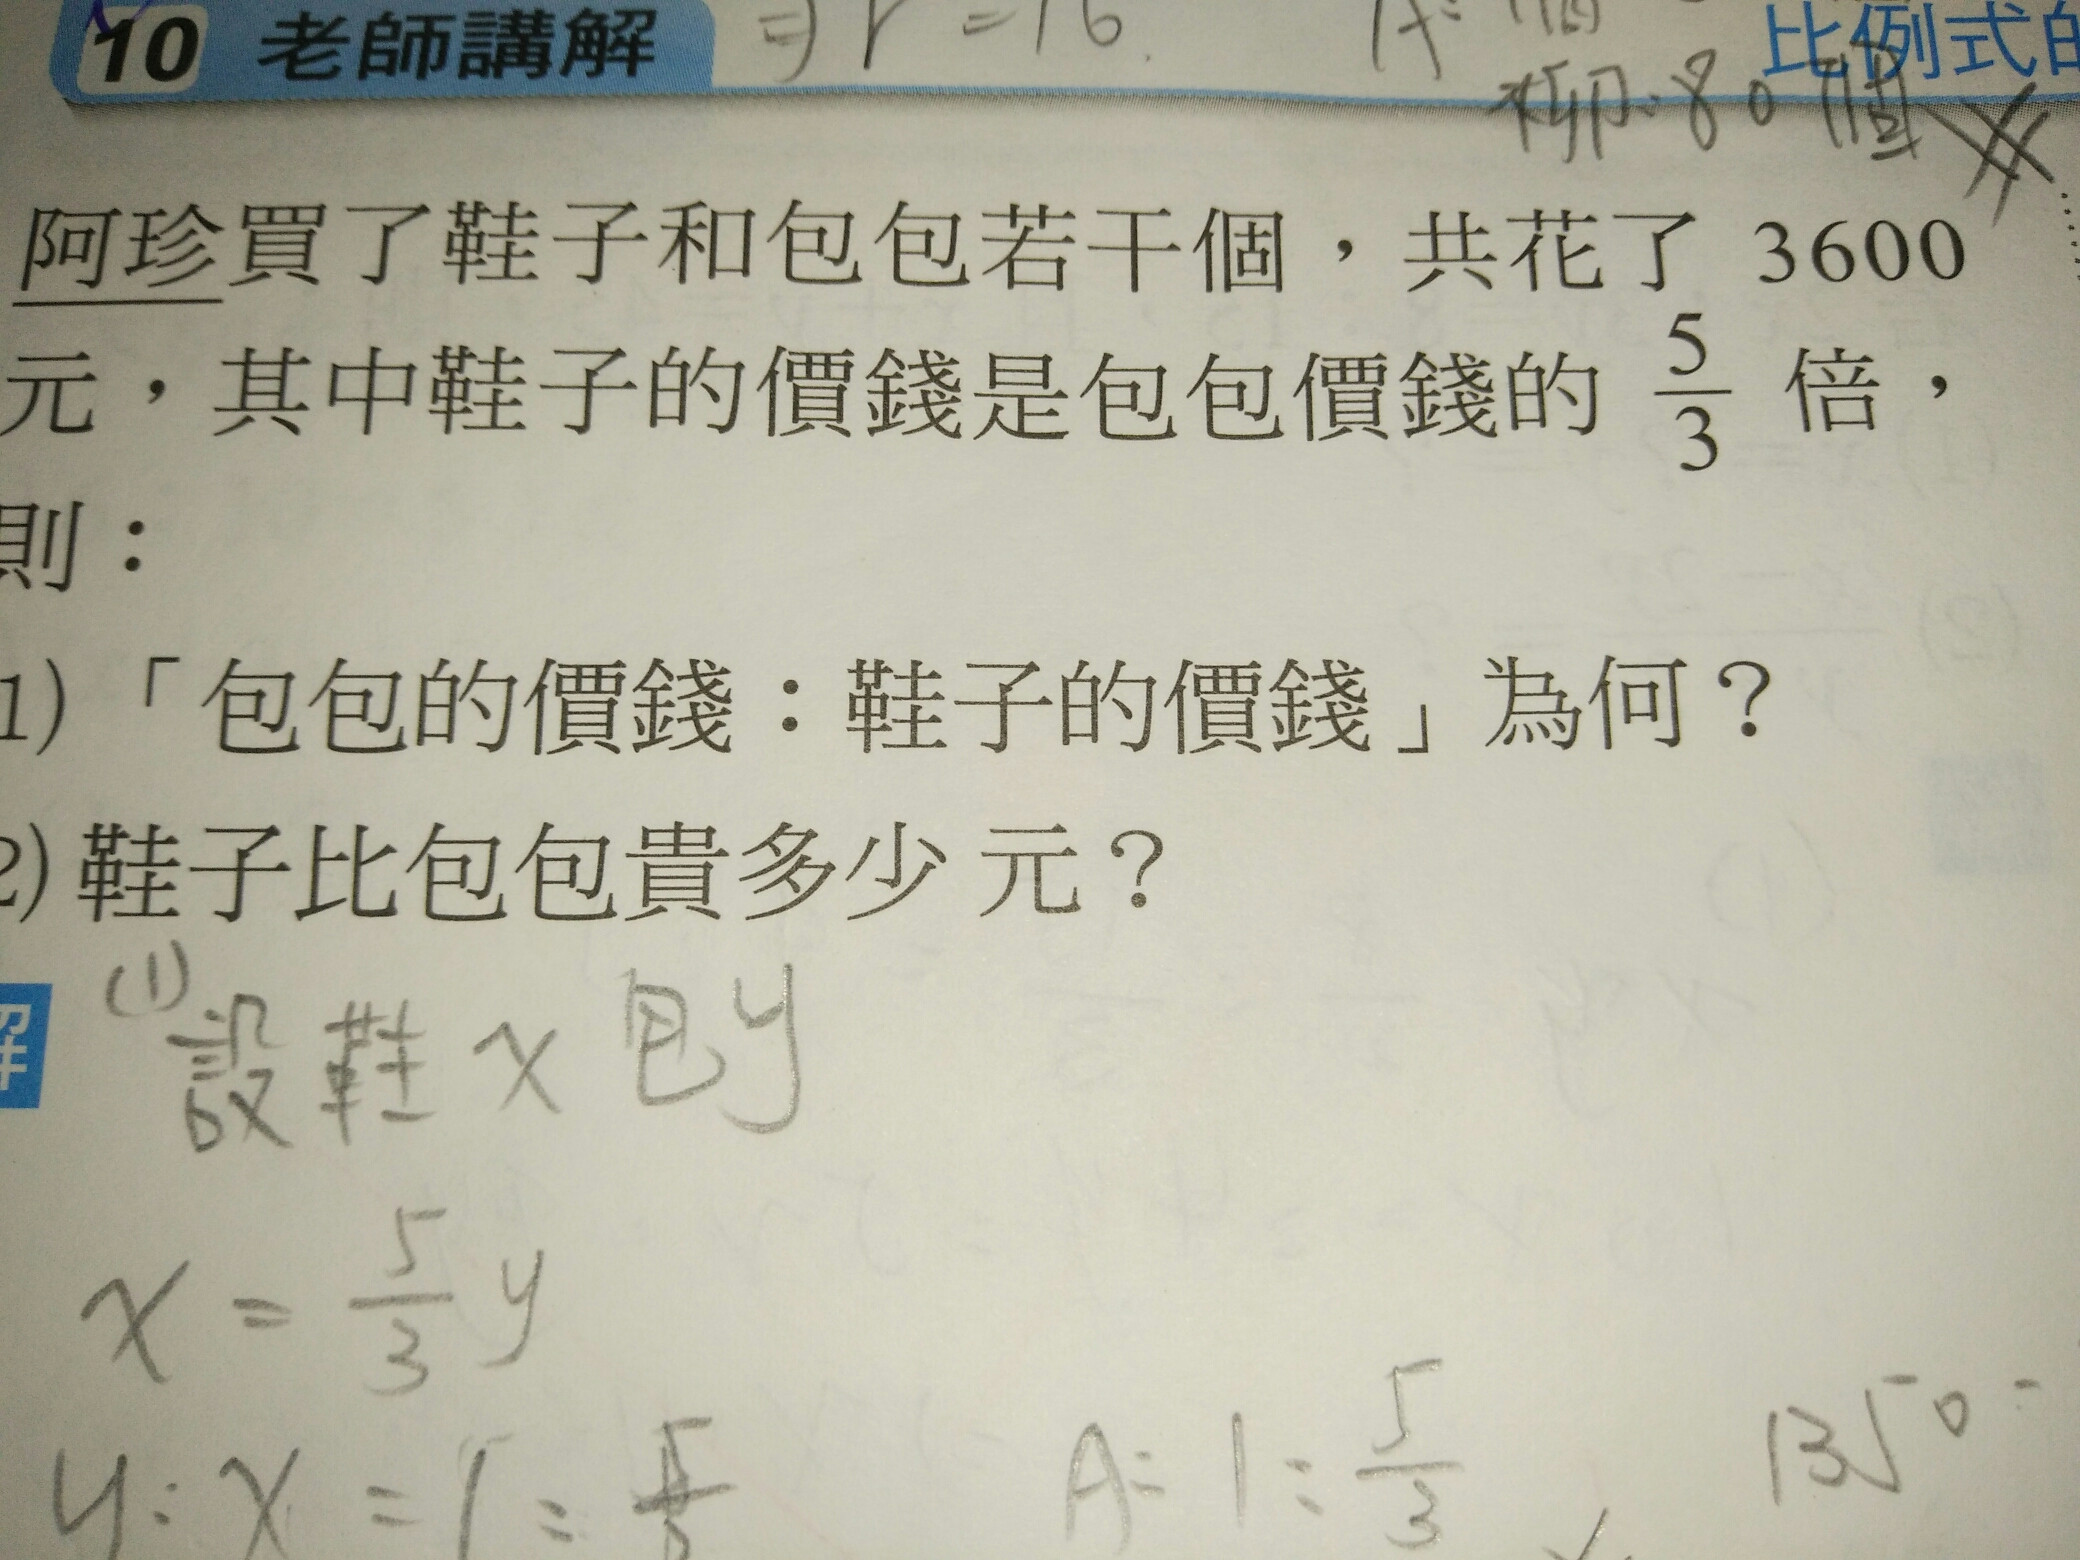 10 老師講解 ⇒ r = 16
比例式的
柳:80個
阿珍買了鞋子和包包若干個，共花了 3600
元，其中鞋子的價錢是包包價錢的 5/3 倍，
則：
1)「包包的價錢：鞋子的價錢」為何？
2) 鞋子比包包貴多少元？
解 (1)
設鞋 x 包 y
x = 5/3 y
y : x = 1 : 5/3 A: 1 : 5/3 1350